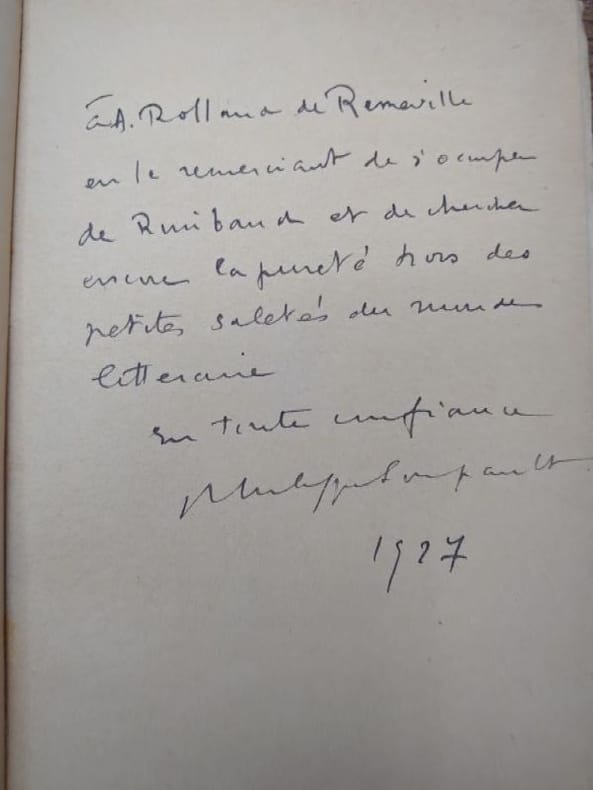 à A. Rolland de Reneville
en le remerciant de s'occuper
de Rimbaud et de chercher
encore la pureté hors des
petites saletés du monde
litteraire
En toute confiance
Philippe Soupault
1927